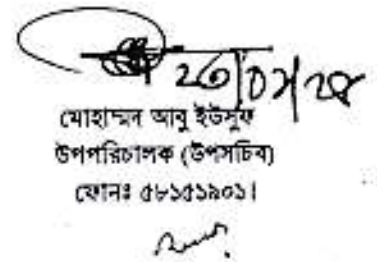 মোহাম্মদ আবু ইউসুফ
উপপরিচালক (উপসচিব)
ফোনঃ ৫৮১৫১৯০১।